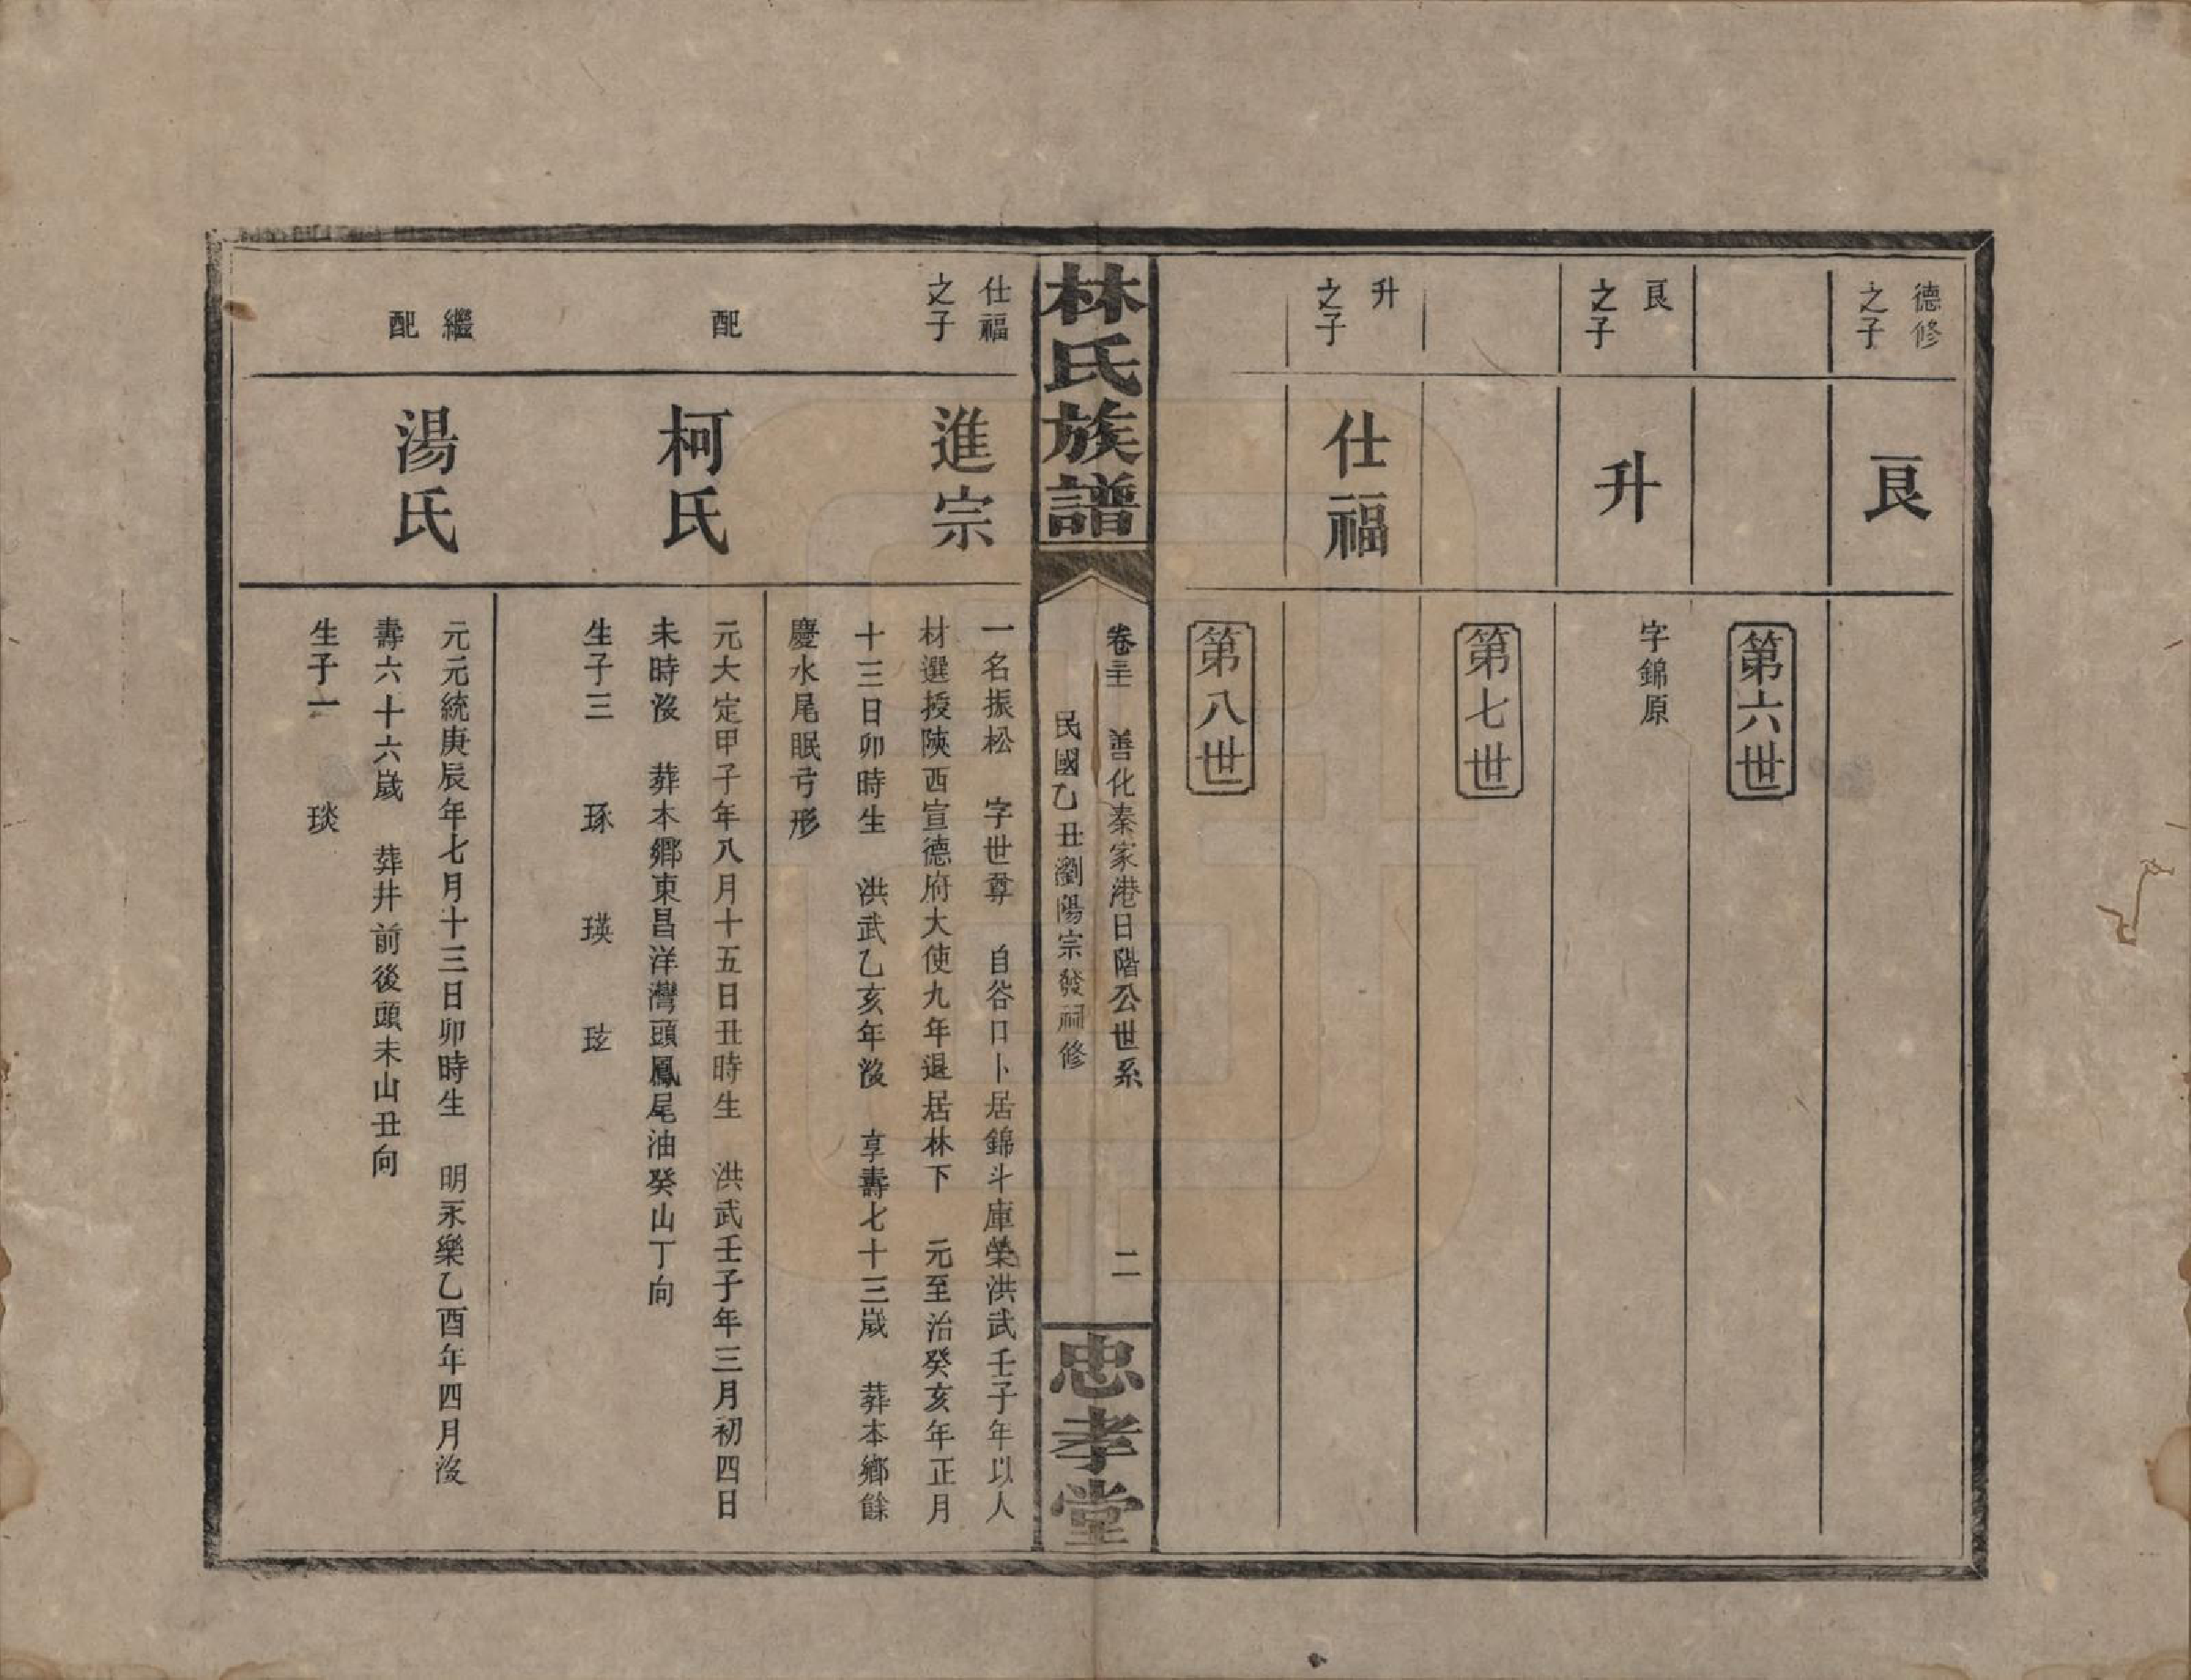 德修
之子
艮
第六世
艮
之子
升
字錦原
第七世
升
之子
仕福
第八世
林氏族譜
善化秦家港日階公世系
民國乙丑瀏陽宗發祠修
二
忠孝堂
仕福
之子
進宗
一名振松　字世尊　自谷口卜居錦斗庫榮洪武壬子年以人
材選授陝西宣德府大使九年退居林下　元至治癸亥年正月
十三日卯時生　洪武乙亥年歿　享壽七十三歲　葬本鄉餘
慶水尾眠弓形
配
柯氏
元大定甲子年八月十五日丑時生　洪武壬子年三月初四日
未時歿　葬本鄉東昌洋灣頭鳳尾油癸山丁向
生子三　琢　瑛　玹
繼
配
湯氏
元元統庚辰年七月十三日卯時生　明永樂乙酉年四月歿
壽六十六歲　葬井前後頭未山丑向
生子一　琰